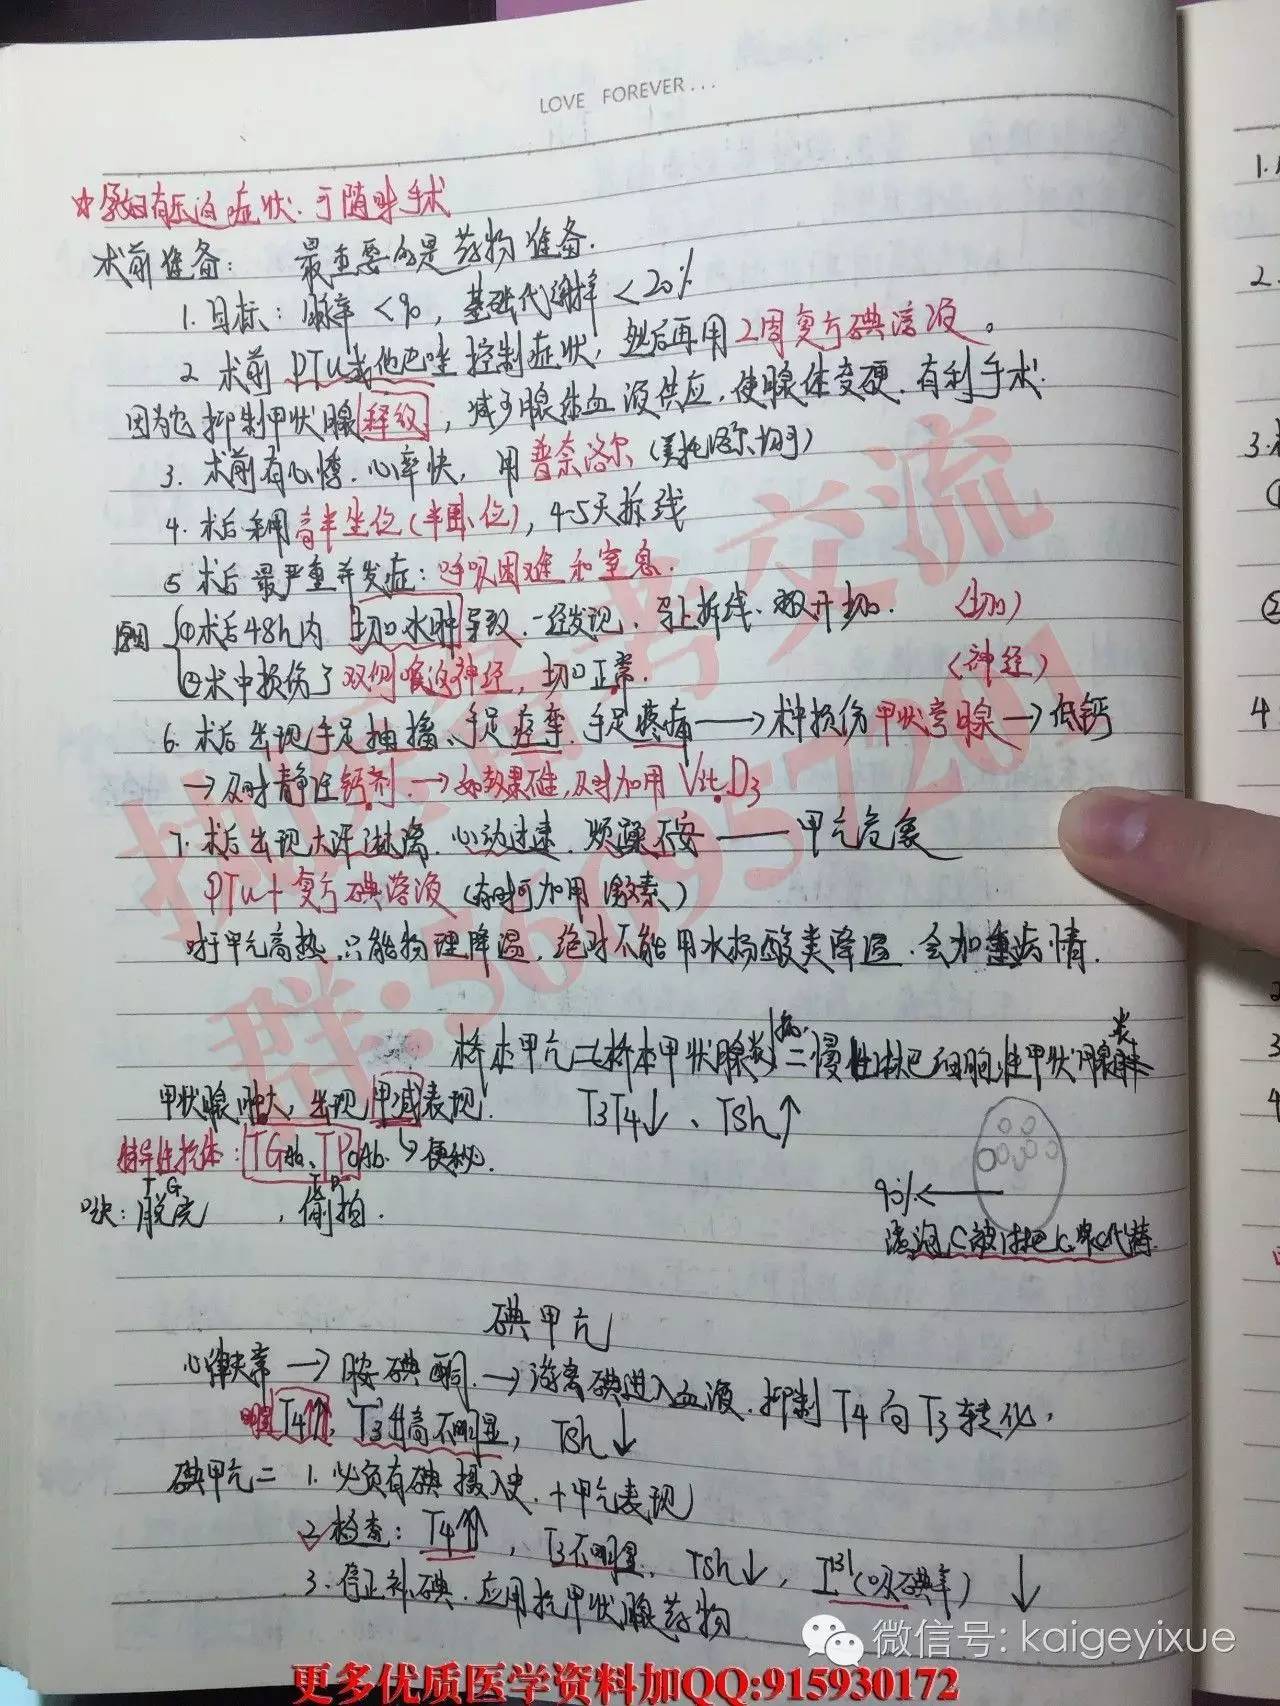 LOVE FOREVER...
☆孕妇有压迫症状.可随时手术
术前准备: 最重要的是药物准备.
1.目标: 脉率<90, 基础代谢率<20%
2 术前PTU或他巴唑控制症状, 然后再用2周复方碘溶液。
因为它抑制甲状腺释放, 减少腺体血液供应, 使腺体变硬. 有利手术.
3. 术前有心悸.心率快, 用普奈洛尔(美托洛尔均可)
4.术后采用高半坐位(半卧位), 4-5天拆线
5 术后最严重并发症: 呼吸困难和窒息.
原因 ①术后48h内 切口水肿导致.一经发现, 马上拆线.敞开切口. (切口)
②术中损伤了双侧喉返神经, 切口正常. (神经)
6.术后出现手足抽搐、手足痉挛.手足疼痛→术中损伤甲状旁腺→低钙
→及时静注钙剂.→如效果不佳,及时加用Vit.D3
7.术后出现大汗淋漓.心动过速.烦躁不安——甲亢危象
PTU+复方碘溶液(有时可加用激素)
对于甲亢高热.只能物理降温.绝对不能用水杨酸类降温.会加重病情.
桥本甲亢=桥本甲状腺炎=慢性淋巴细胞性甲状腺炎
甲状腺肿大, 出现甲减表现. T3T4↓、TSh↑
特异性抗体: TGAb、TPOAb. ↳便秘.
T G T P
口诀: 脱光 , 偷拍.
90%←
滤泡C被淋巴C.浆C代替.
碘甲亢
心律失常→胺碘酮.→游离碘进入血液.抑制T4向T3转化,
明显T4↑↑, T3升高不明显, TSh↓
碘甲亢= 1.必须有碘摄入史.+甲亢表现
2 检查: T4↑↑, T3不明显, TSh↓, I131(吸碘率)↓
3.停止补碘.应用抗甲状腺药物
1.
2.
3.
4
2
3
4
群:569957201
微信号: kaigeyixue
更多优质医学资料加QQ:915930172